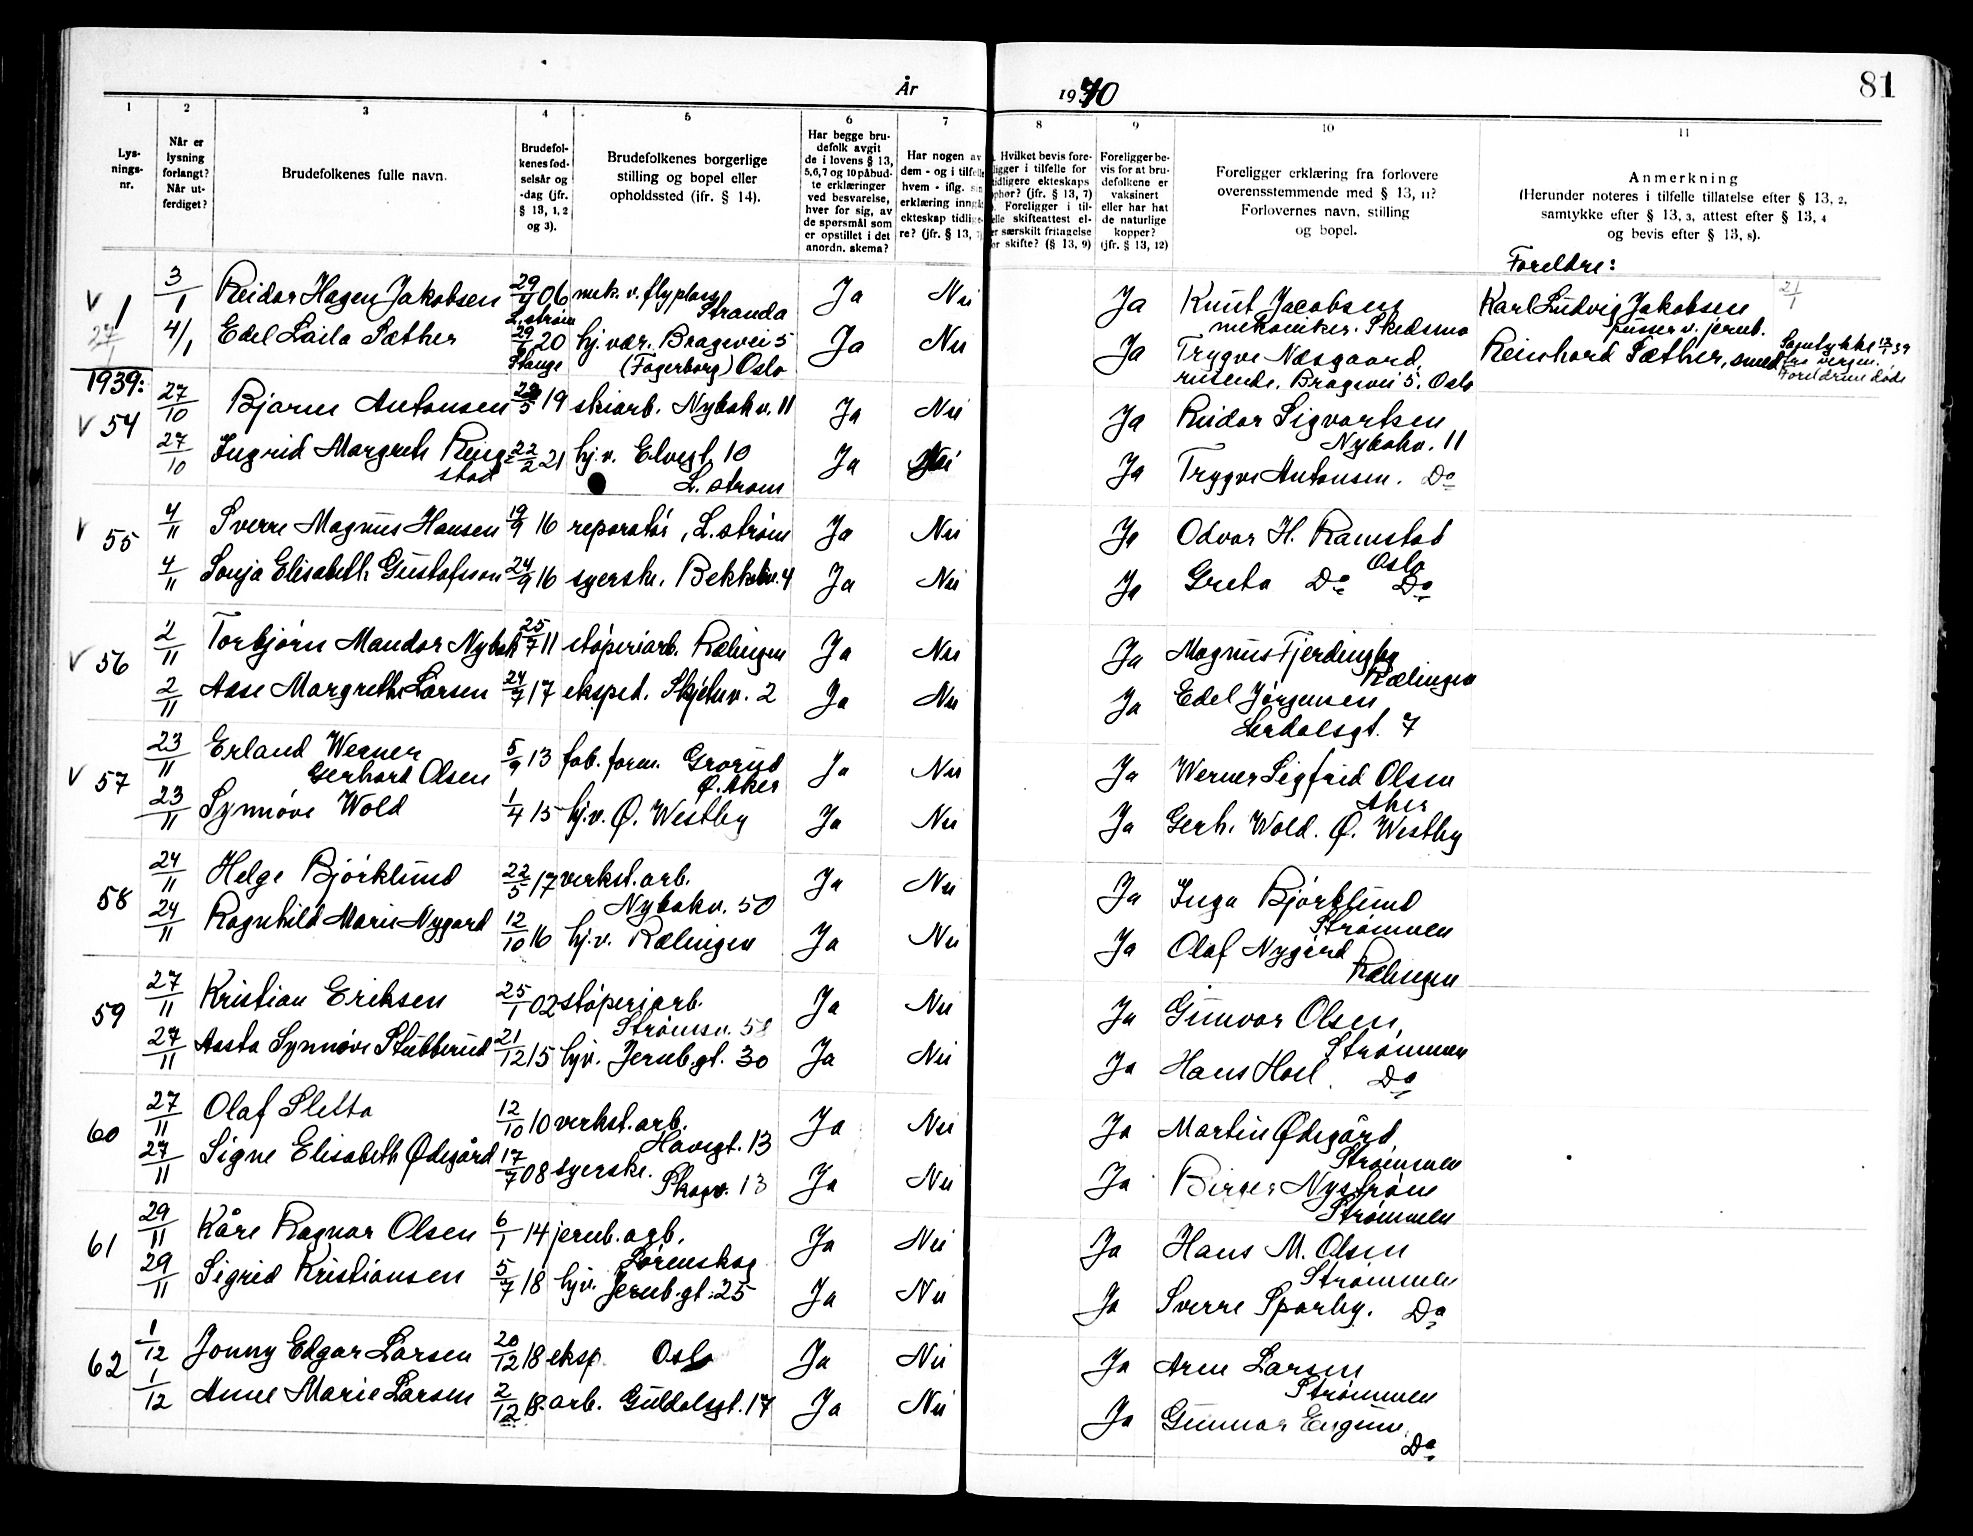 År 1940
81
1 2 3 4 5 6 7 8 9 10 11
Lys-
nings-
nr.
Når er
lysning
forlangt?
Når ut-
ferdiget?
Brudefolkenes fulle navn.
Brudefol-
kenes fød-
selsår og
-dag (jfr.
§ 13, 1, 2
og 3).
Brudefolkenes borgerlige
stilling og bopel eller
opholdssted (ifr. § 14).
Har begge bru-
defolk avgit
de i lovens § 13,
5,6,7 og 10 påbud-
te erklæringer
ved besvarelse,
hver for sig, av
de spørsmål som
er opstillet i det
anordn. skema?
Har nogen av
dem - og i tilfelle
hvem - iflg. sin
erklæring inngåt
ekteskap tidlige-
re? (jfr. § 13, 7)
Hvilket bevis fore-
ligger i tilfelle for
tidligere ekteskaps
ophør? (ifr. § 13, 7)
Foreligger i til-
felle skifteattest el-
er særskilt fritagelse
for skifte? (§ 13, 9)
Foreligger be-
vis for at bru-
defolkene er
vaksinert
eller har hat
de naturlige
kopper?
(jfr. § 13, 12)
Foreligger erklæring fra forlovere
overensstemmende med § 13, 11?
Forlovernes navn, stilling
og bopel.
Anmerkning
(Herunder noteres i tilfelle tillatelse efter § 13, 2,
samtykke efter § 13, 3, attest efter § 13, 4
og bevis efter § 13, 8).
Foreldre:
V 1 3/1 Reidar Hagen Jakobsen 29/4 06 L.strøm mek. v. flyplass Stranda Ja Nei Ja Knut Jacobsen Karl Ludvig Jakobsen 21/1
mekaniker. Skedsmo pusser v. jernb.
27/1 4/1 Edel Laila Sæther 29/6 20 Stange hj. vær. Bragevei 5 Ja Nei Ja Trygve Næsgaard, Reinhard Sæther, smed Samtykke 13/1 39
(Fagerborg) Oslo reisende. Bragevei 5. Oslo fra vergen.
Foreldrene døde
1939:
V 54 27/10 Bjarne Antonsen 28/5 19 skiarb. Nybakv. 11 Ja Nei Ja Reidar Sigvartsen
Nybakv. 11
27/10 Ingrid Margreth Ring= 22/2 21 hj.v. Elvegt. 10 Ja Nei Ja Trygve Antonsen. Do
stad L. strøm
V 55 4/11 Sverre Magnus Hansen 19/9 16 reparatør, L.strøm Ja Nei Ja Odvar H. Ramstad
Oslo
4/11 Sonja Elisabeth Gustafsson 24/9 16 syerske. Bekkekv. 4 Ja Nei Ja Greta Do Do
V 56 2/11 Torbjørn Mandor Nybak 25/7 11 støperiarb. Rælingen Ja Nei Ja Magnus Fjerdingby
Rælingen
2/11 Aase Margrethe Larsen 24/7 17 eksped. Skjetnv. 2 Ja Nei Ja Edel Jørgensen
Lerdalsgt. 7
V 57 23/11 Erland Werner 5/9 13 fab. form. Grorud Ja Nei Ja Werner Sigfrid Olsen
Gerhard Olsen Ø. Aker Aker
23/11 Synnøve Wold 1/4 15 hj.v. Ø. Westby Ja Nei Ja Gerh. Wold. Ø. Westby
58 24/11 Helge Bjørklund 22/5 17 verkst.arb. Ja Nei Ja Inga Bjørklund
Nybakv. 50 Strømmen
24/11 Ragnhild Marie Nygard 12/10 16 hj.v. Rælingen Ja Nei Ja Olaf Nygård
Rælingen
59 27/11 Kristian Eriksen 25/1 02 støperiarb. Ja Nei Ja Gunvor Olsen,
Strømsv. 58 Strømmen
27/11 Aasta Synnøve Stubberud 21/12 15 hjv. Jernb.gt. 30 Ja Nei Ja Hans Hoel. Do
60 27/11 Olaf Sletta 12/10 10 verkst.arb. Ja Nei Ja Martin Ødegård,
Havegt. 13 Strømmen
27/11 Signe Elisabeth Ødegård 17/7 08 syerske. Ja Nei Ja Birger Nystrøm
Skogv. 13 Strømmen
61 29/11 Kåre Ragnar Olsen 6/1 14 jernb.arb. Ja Nei Ja Hans M. Olsen
Lørenskog Strømmen
29/11 Sigrid Kristiansen 5/7 18 hjv. Jernb.gt. 25 Ja Nei Ja Sverre Sparby. Do
62 1/12 Jonny Edgar Larsen 20/12 18 eksp. Oslo Ja Nei Ja Arne Larsen
Strømmen
1/12 Anne Marie Larsen 2/12 18. arb. Guldalsgt. 17 Ja Nei Ja Gunnar Engene.
Do